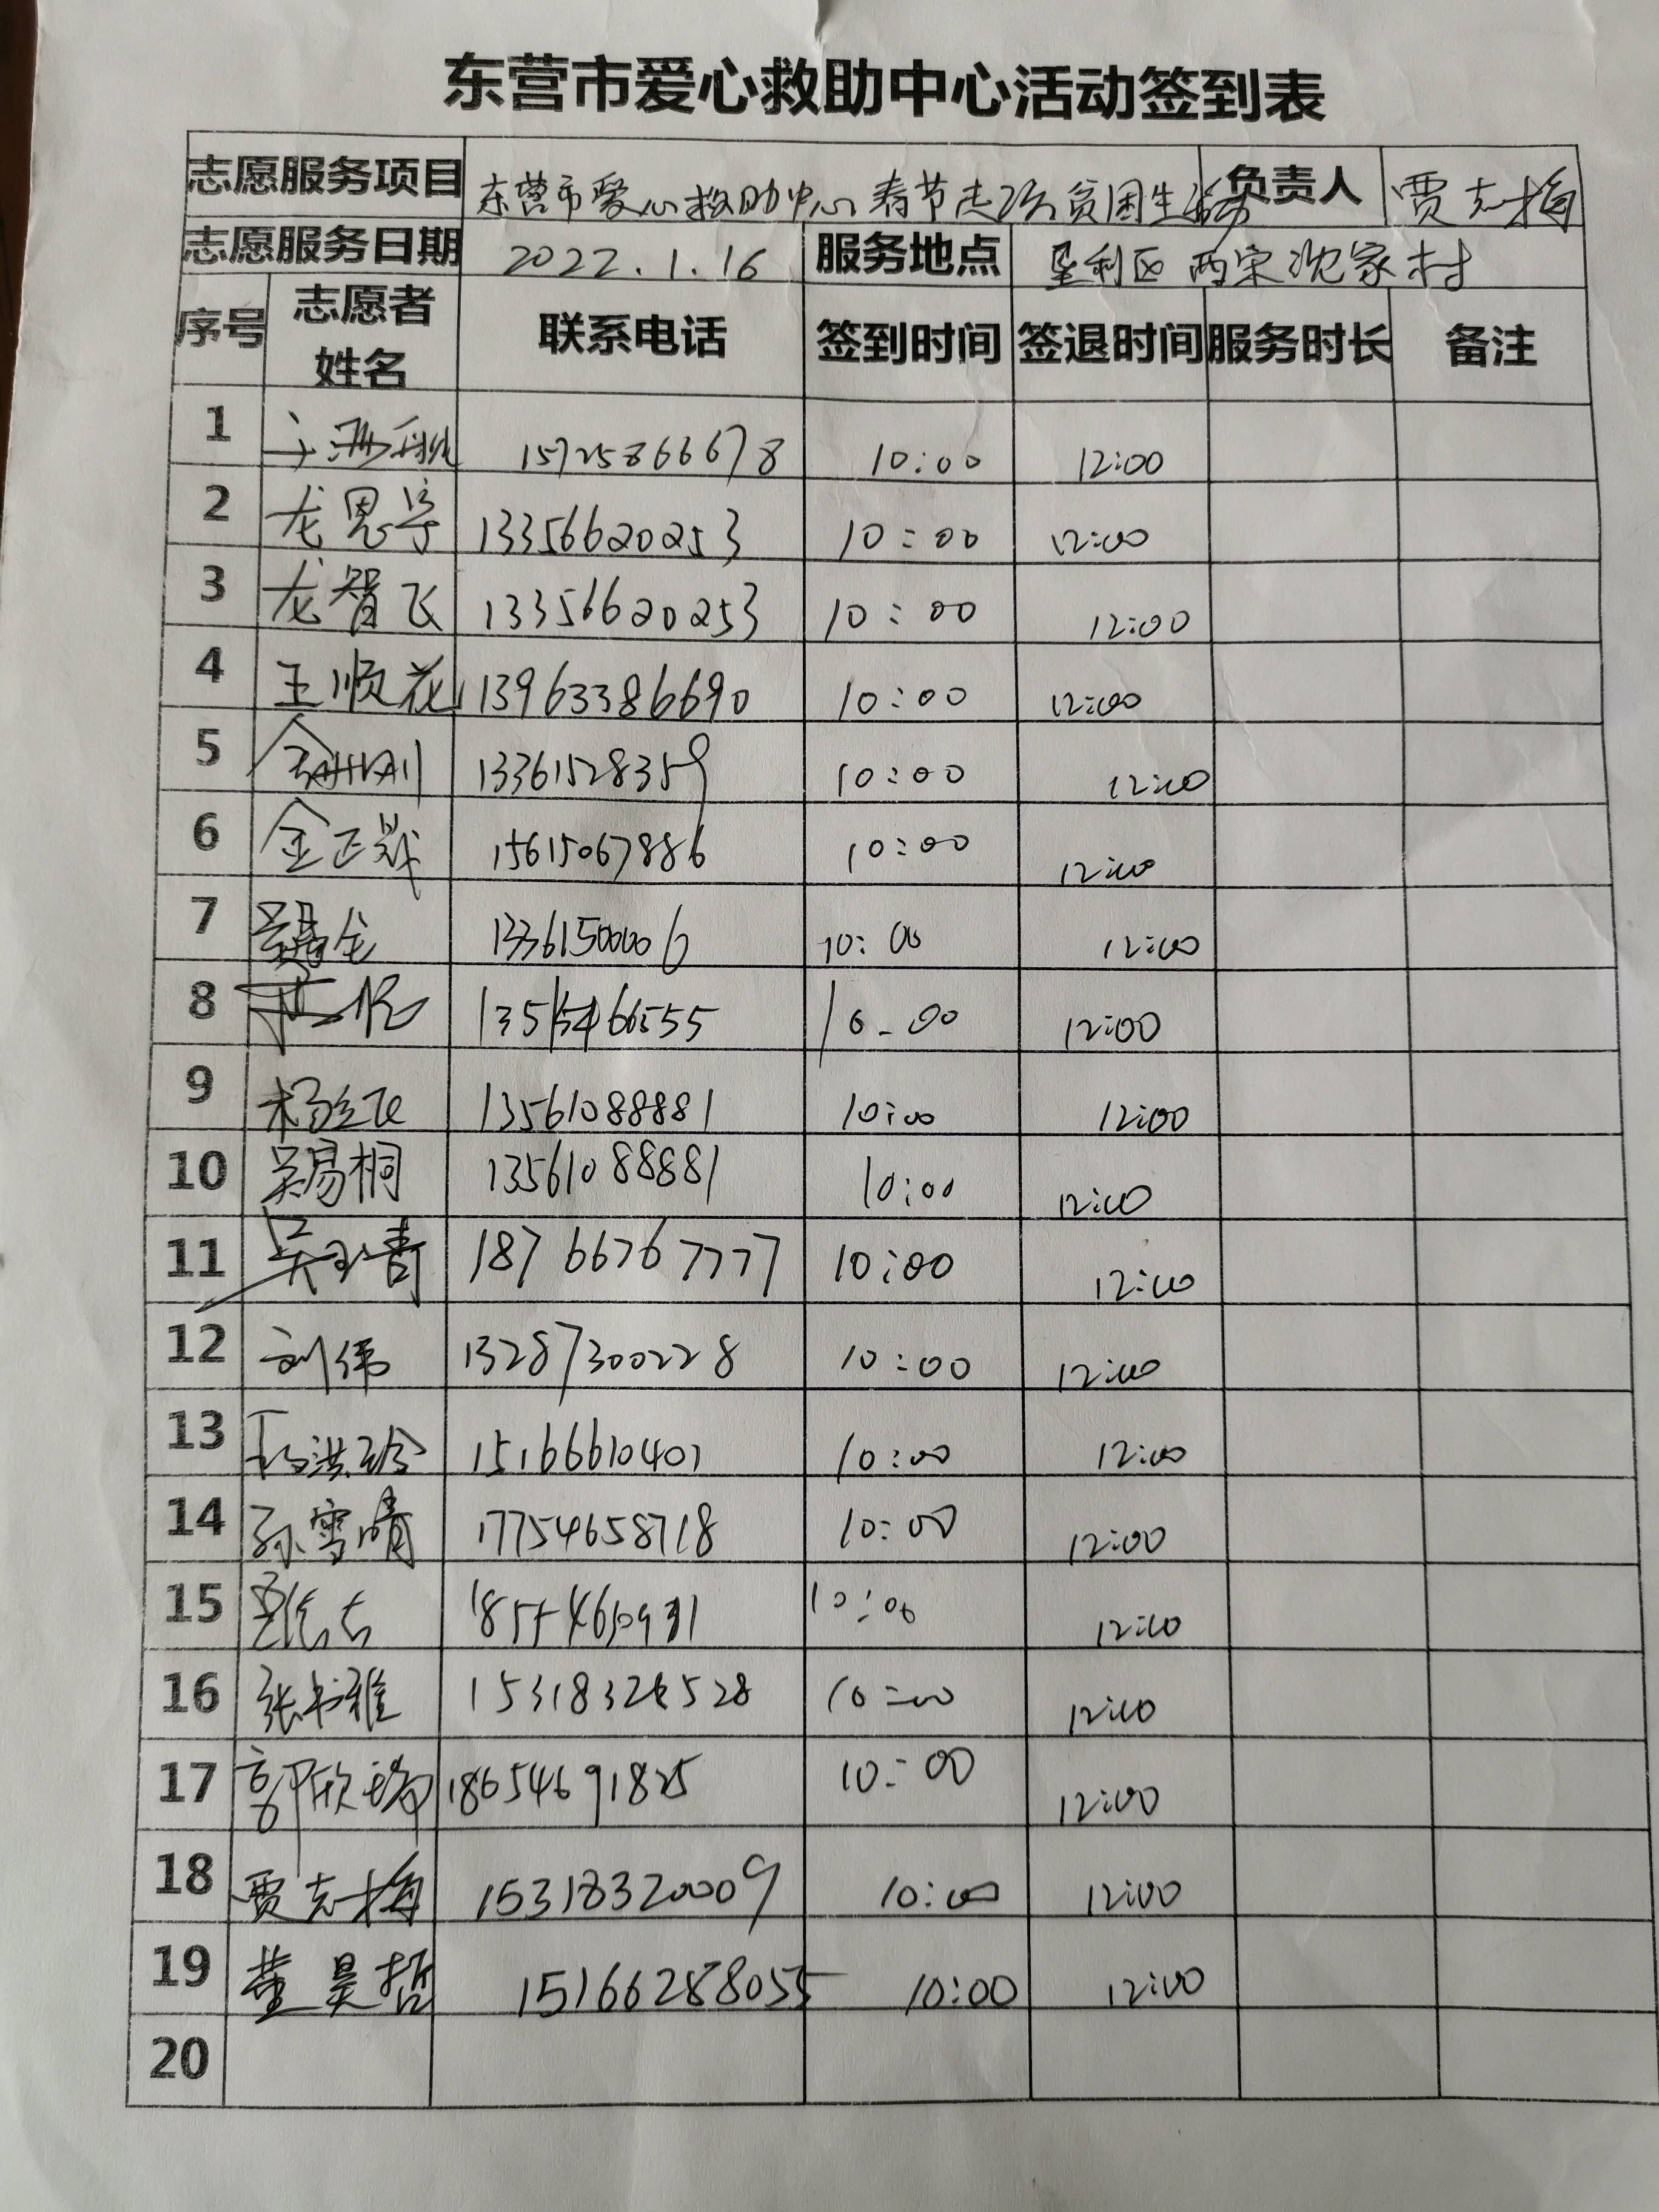 东营市爱心救助中心活动签到表
志愿服务项目 东营市爱心救助中心春节走访贫困生活动 负责人 贾志梅
志愿服务日期 2022.1.16 服务地点 垦利区西宋沈家村
序号 志愿者姓名 联系电话 签到时间 签退时间 服务时长 备注
1 15725866678 10:00 12:00
2 龙思宇 13356620253 10:00 12:00
3 龙智飞 13356620253 10:00 12:00
4 王顺花 13963386690 10:00 12:00
5 13361528359 10:00 12:00
6 金正 15615067886 10:00 12:00
7 13361500006 10:00 12:00
8 10:00 12:00
9 13561088881 10:00 12:00
10 吴易桐 13561088881 10:00 12:00
11 18766767777 10:00 12:00
12 刘伟 13287300228 10:00 12:00
13 15166610401 10:00 12:00
14 孙雪晴 17754658718 10:00 12:00
15 10:00 12:00
16 张书雅 10:00 12:00
17 郭欣 18654691825 10:00 12:00
18 贾志梅 15318320009 10:00 12:00
19 董昊哲 15166288055 10:00 12:00
20